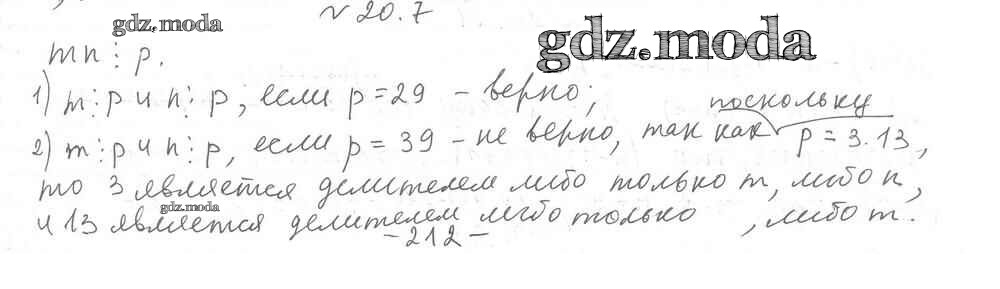 № 20.7
gdz.moda
gdz.moda
mn ⋮ p.
1) m ⋮ p и n ⋮ p, если p = 29 – верно;
поскольку
2) m ⋮ p и n ⋮ p, если p = 39 – не верно, так как p = 3.13,
то 3 является делителем либо только m, либо n,
gdz.moda
и 13 является делителем либо только , либо m.
– 212 –